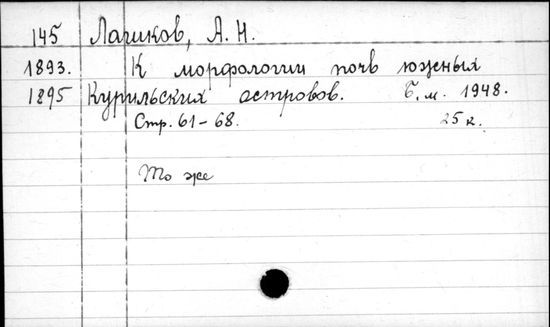 145 Лачиков, А. Н.
1893. К морфологии почв южных
1895 Курильских островов. Б. м. 1948.
Стр. 61-68. 25 к.
То же